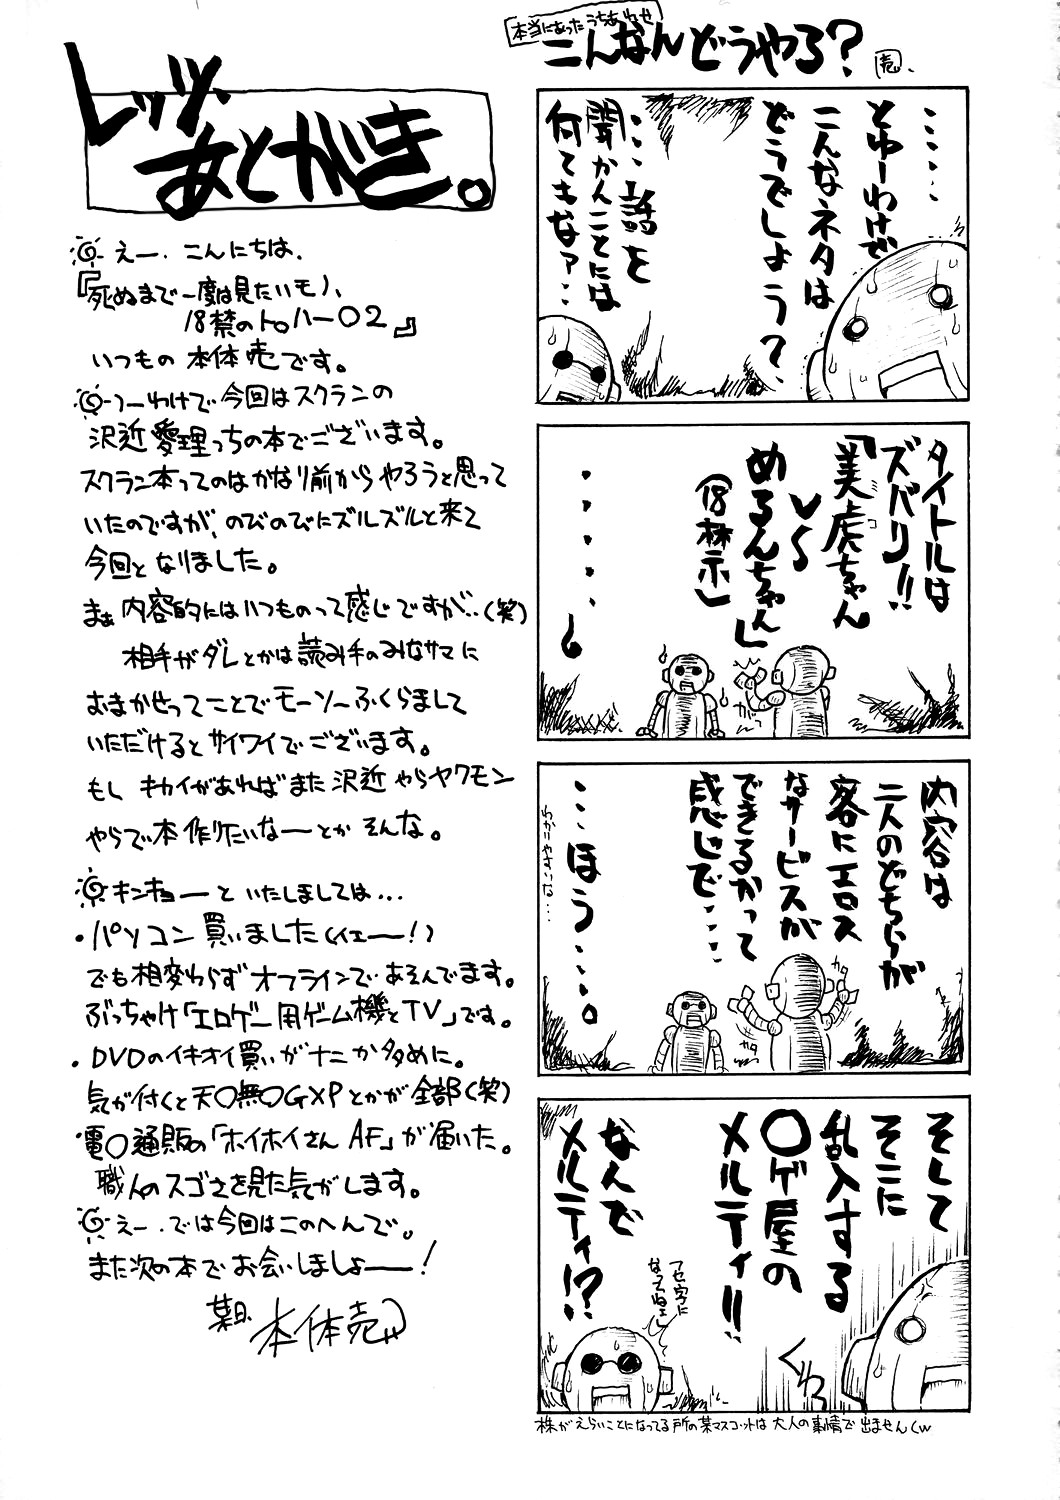 本当にあったうちあわせ
こんなんどうやる?
売
‥‥‥
とゆーわけで
こんなネタは
どうでしょう?
‥‥話を
聞かんことには
何てもなァ‥‥
タイトルは
ズバリ!!
「美虎ちゃん
コ
VS
めるんちゃん」
(18禁)
・・・・・・
内容は
二人のどちらが
客にエロス
なサービスが
できるかって
感じで‥‥
‥‥ほう‥‥。
わかりやすいな‥‥
カタ
カタ
そして
そこに
乱入する
〇ゲ屋の
メルティ!!
なんで
メルティ!?
フセ字に
なってねェし
ぐわ
株がえらいことになってる所の某マスコットは大人の事情で出ませんくw
レッツ、
あとがき。
えー、こんにちは、
『死ぬまで一度は見たいモノ、
18禁のトロハー〇2』
いつもの本体売です。
つーわけで今回はスクランの
沢近愛理っちの本でございます。
スクラン本ってのはかなり前からやろうと思って
いたのですが、のびのびにズルズルと来て
今回となりました。
まぁ内容的にはいつものって感じですが‥(笑)
相手がダレとかは読み手のみなサマに
おまかせってことでモーソーふくらまして
いただけるとサイワイでございます。
もしキカイがあればまた沢近やらヤクモン
やらで本作りたいなーとかそんな。
キンキョーといたしましては‥‥
・パソコン買いました(イェーー!)
でも相変わらずオフラインであそんでます。
ぶっちゃけ「エロゲー用ゲーム機とTV」です。
・DVDのイキオイ買いがナニか多めに。
気が付くと天〇無〇GXPとかが全部(笑)
電〇通販の「ホイホイさんAF」が届いた。
職人のスゴさを見た気がします。
えー、では今回はこのへんで。
また次の本でお会いしましょーー!
某日、本体売